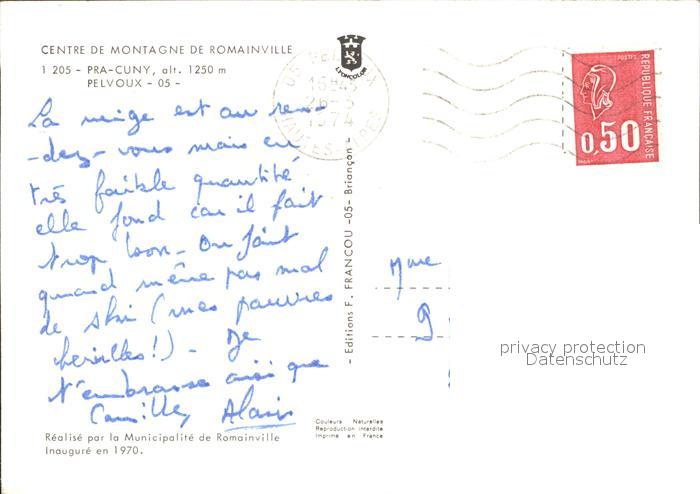 CENTRE DE MONTAGNE DE ROMAINVILLE
1 205 - PRA-CUNY, alt. 1250 m
PELVOUX - 05 -
La neige est au ren-
-dez-vous mais en
très faible quantité,
elle fond car il fait
trop bon - On fait
quand même pas mal
de ski (mes pauvres
chevilles!) - Je
t'embrasse ainsi que
Camille, Alain
Réalisé par la Municipalité de Romainville
Inauguré en 1970.
LYONCOLOR
05
16H45
26-3
1974
HAUTES-ALPES
- Editions F. FRANCOU -05- Briançon -
Couleurs Naturelles
Reproduction interdite
Imprimé en France
POSTES
REPUBLIQUE FRANÇAISE
0,50
Mme
9
privacy protection
Datenschutz